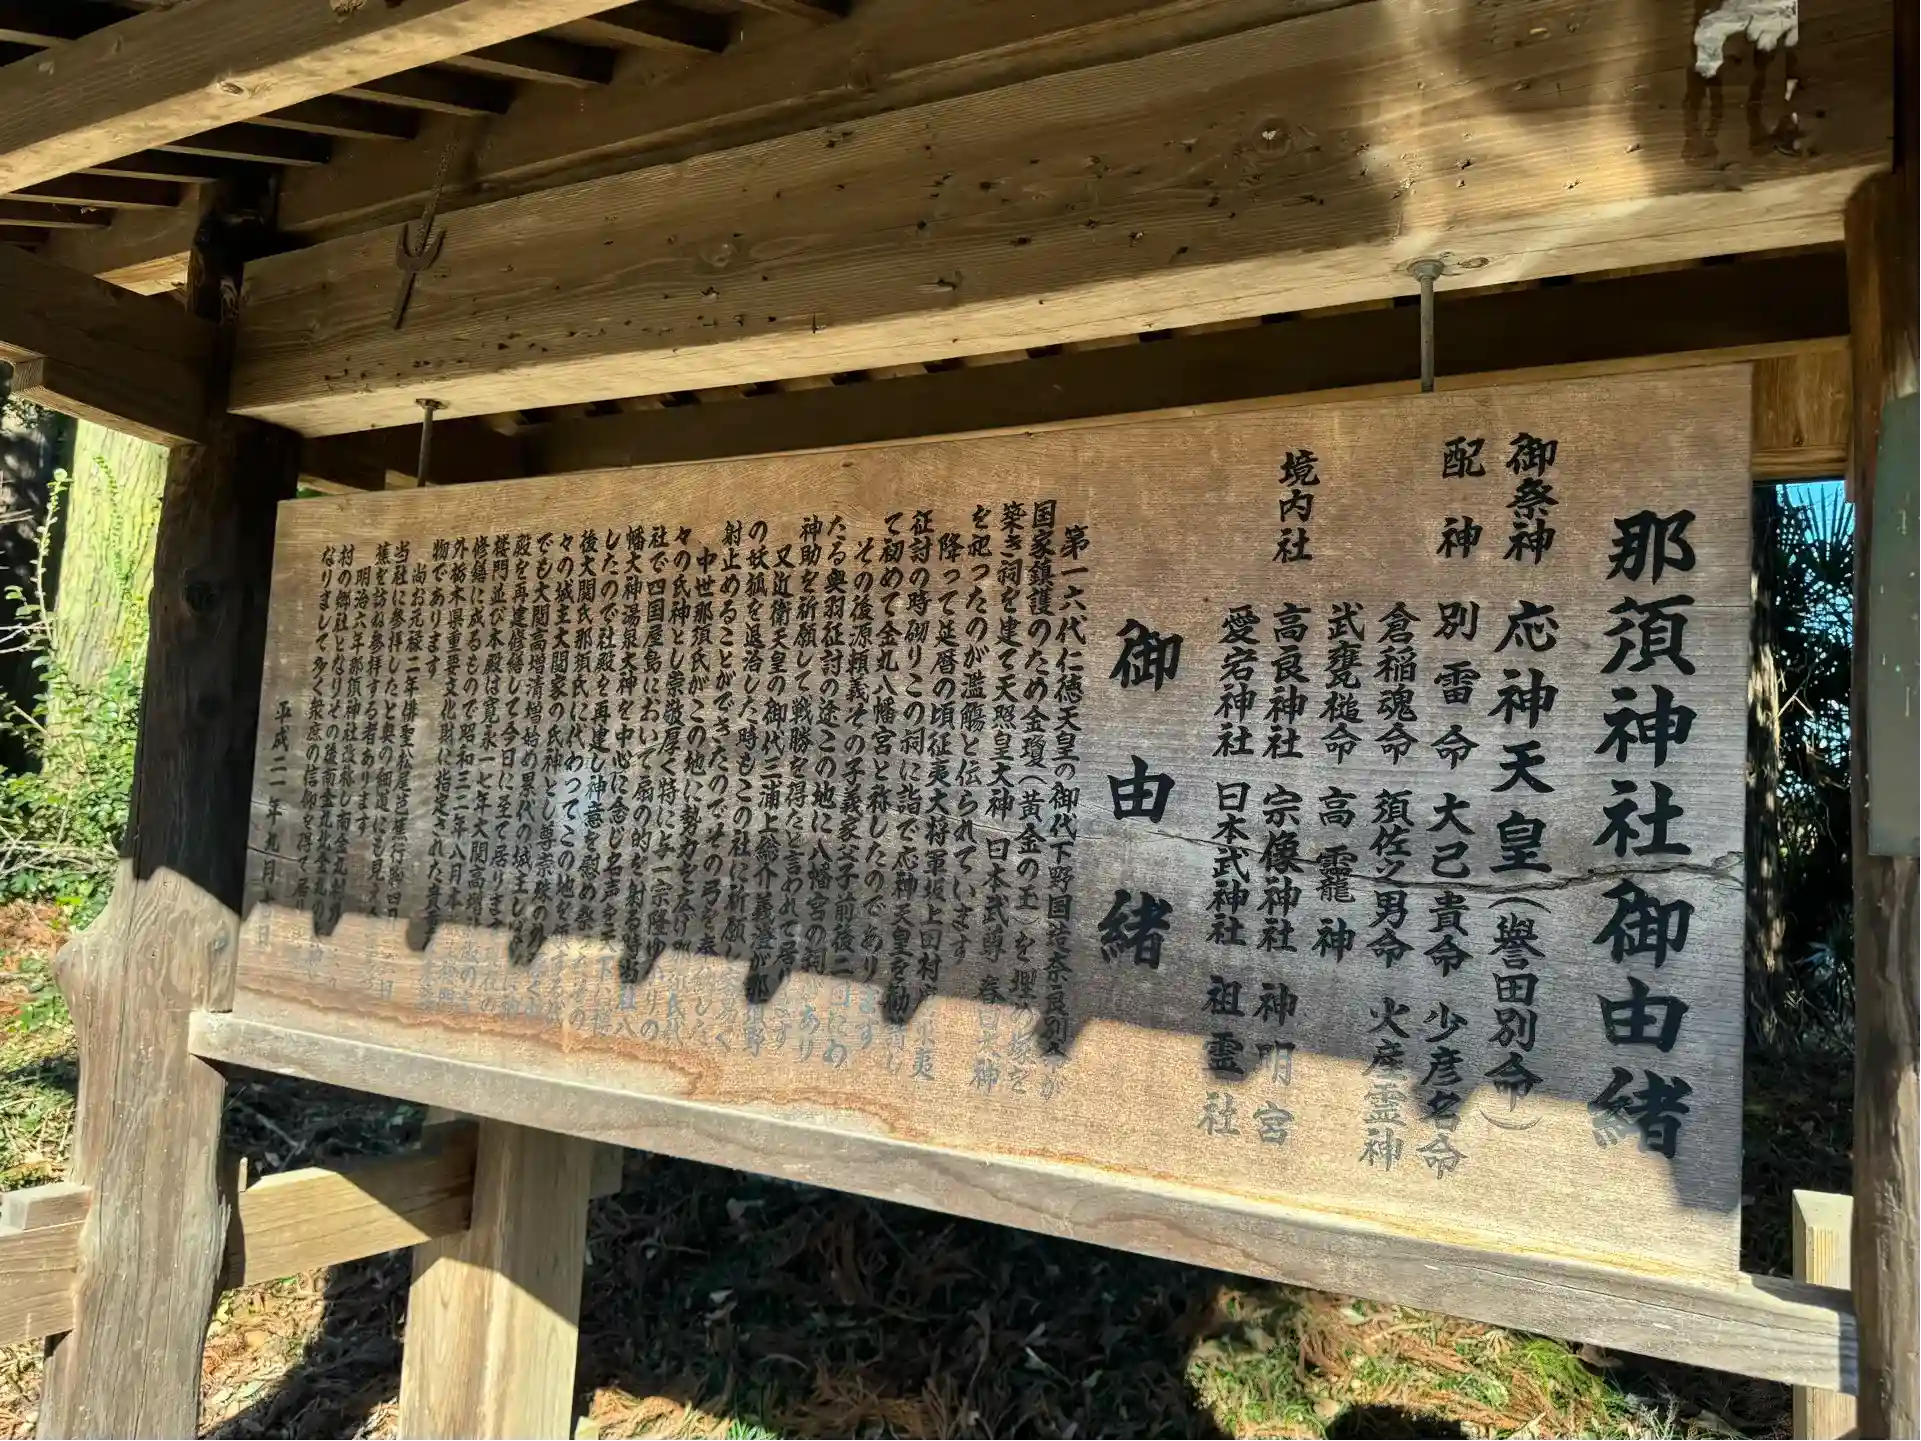 那須神社御由緒
御祭神 応神天皇(譽田別命)
配神 別雷命 大己貴命 少彦名命
倉稲魂命 須佐ノ男命 火産霊神
武甕槌命 高龗神
境内社 高良神社 宗像神社 神明宮
愛宕神社 日本武神社 祖霊社
御由緒
第一六代仁徳天皇の御代下野国造奈良別命が
国家鎮護のため金瓊(黄金の玉)を埋め塚を
築き祠を建て天照皇大神 日本武尊 春日大神
を祀ったのが濫觴と伝られています
降って延暦の頃征夷大将軍坂上田村麿東夷
征討の時砌りこの祠に詣で応神天皇を勧請し
て初めて金丸八幡宮と称したのであります
その後源頼義その子義家父子前後二回にわ
たる奥羽征討の途この地に八幡宮の祠があり
神助を祈願して戦勝を得たと言われて居ります
又近衛天皇の御代三浦上総介義澄が那須野
の妖狐を退治した時もこの社に祈願し
射止めることができたのでその弓を奉納し
中世那須氏がこの地に勢力を広げ那須氏代
々の氏神とし崇敬厚く特に与一宗隆ゆかりの
社で四国屋島において扇の的を射る時当社八
幡大神湯泉大神を中心に念じ名声を天下に
したので社殿を再建し神意を慰め祭
後大関氏那須氏に代わってこの地を
々の城主大関家の氏神とし尊崇殊の外
でも大関高増清増始め累代の城主し
殿を再建修繕して今日に至て居ります
楼門並び本殿は寛永一七年大関高増
修繕に成るもので昭和三二年八月本
外栃木県重要文化財に指定された貴重
物であります
尚お元禄二年俳聖松尾芭蕉行脚四日
当社に参拝したと奥の細道にも見え
蕉を訪ね参拝する者あります
明治六年那須神社改称し南金丸村
村の郷社となりその後南金丸北金丸の
なりまして多く衆庶の信仰を得て居り
平成二一年九月吉日